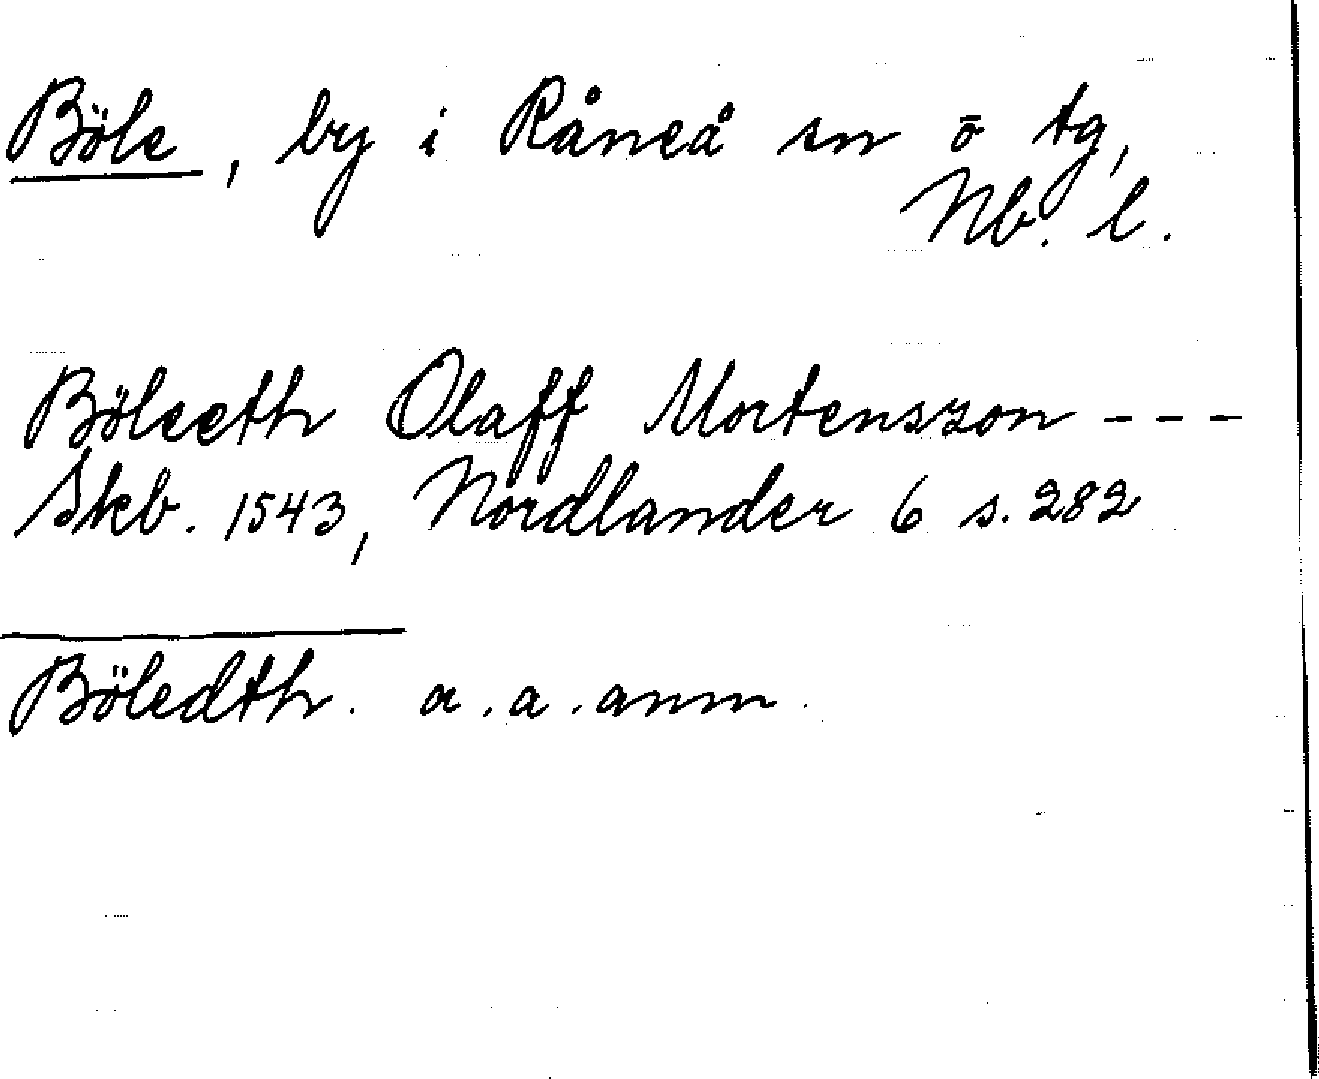 Böle, by i Råneå sn ō tg,
Nb. l.
Böleeth Olaff Mortensson - - -
Skb. 1543, Nordlander 6 s. 282
Böledth. a.a. anm.